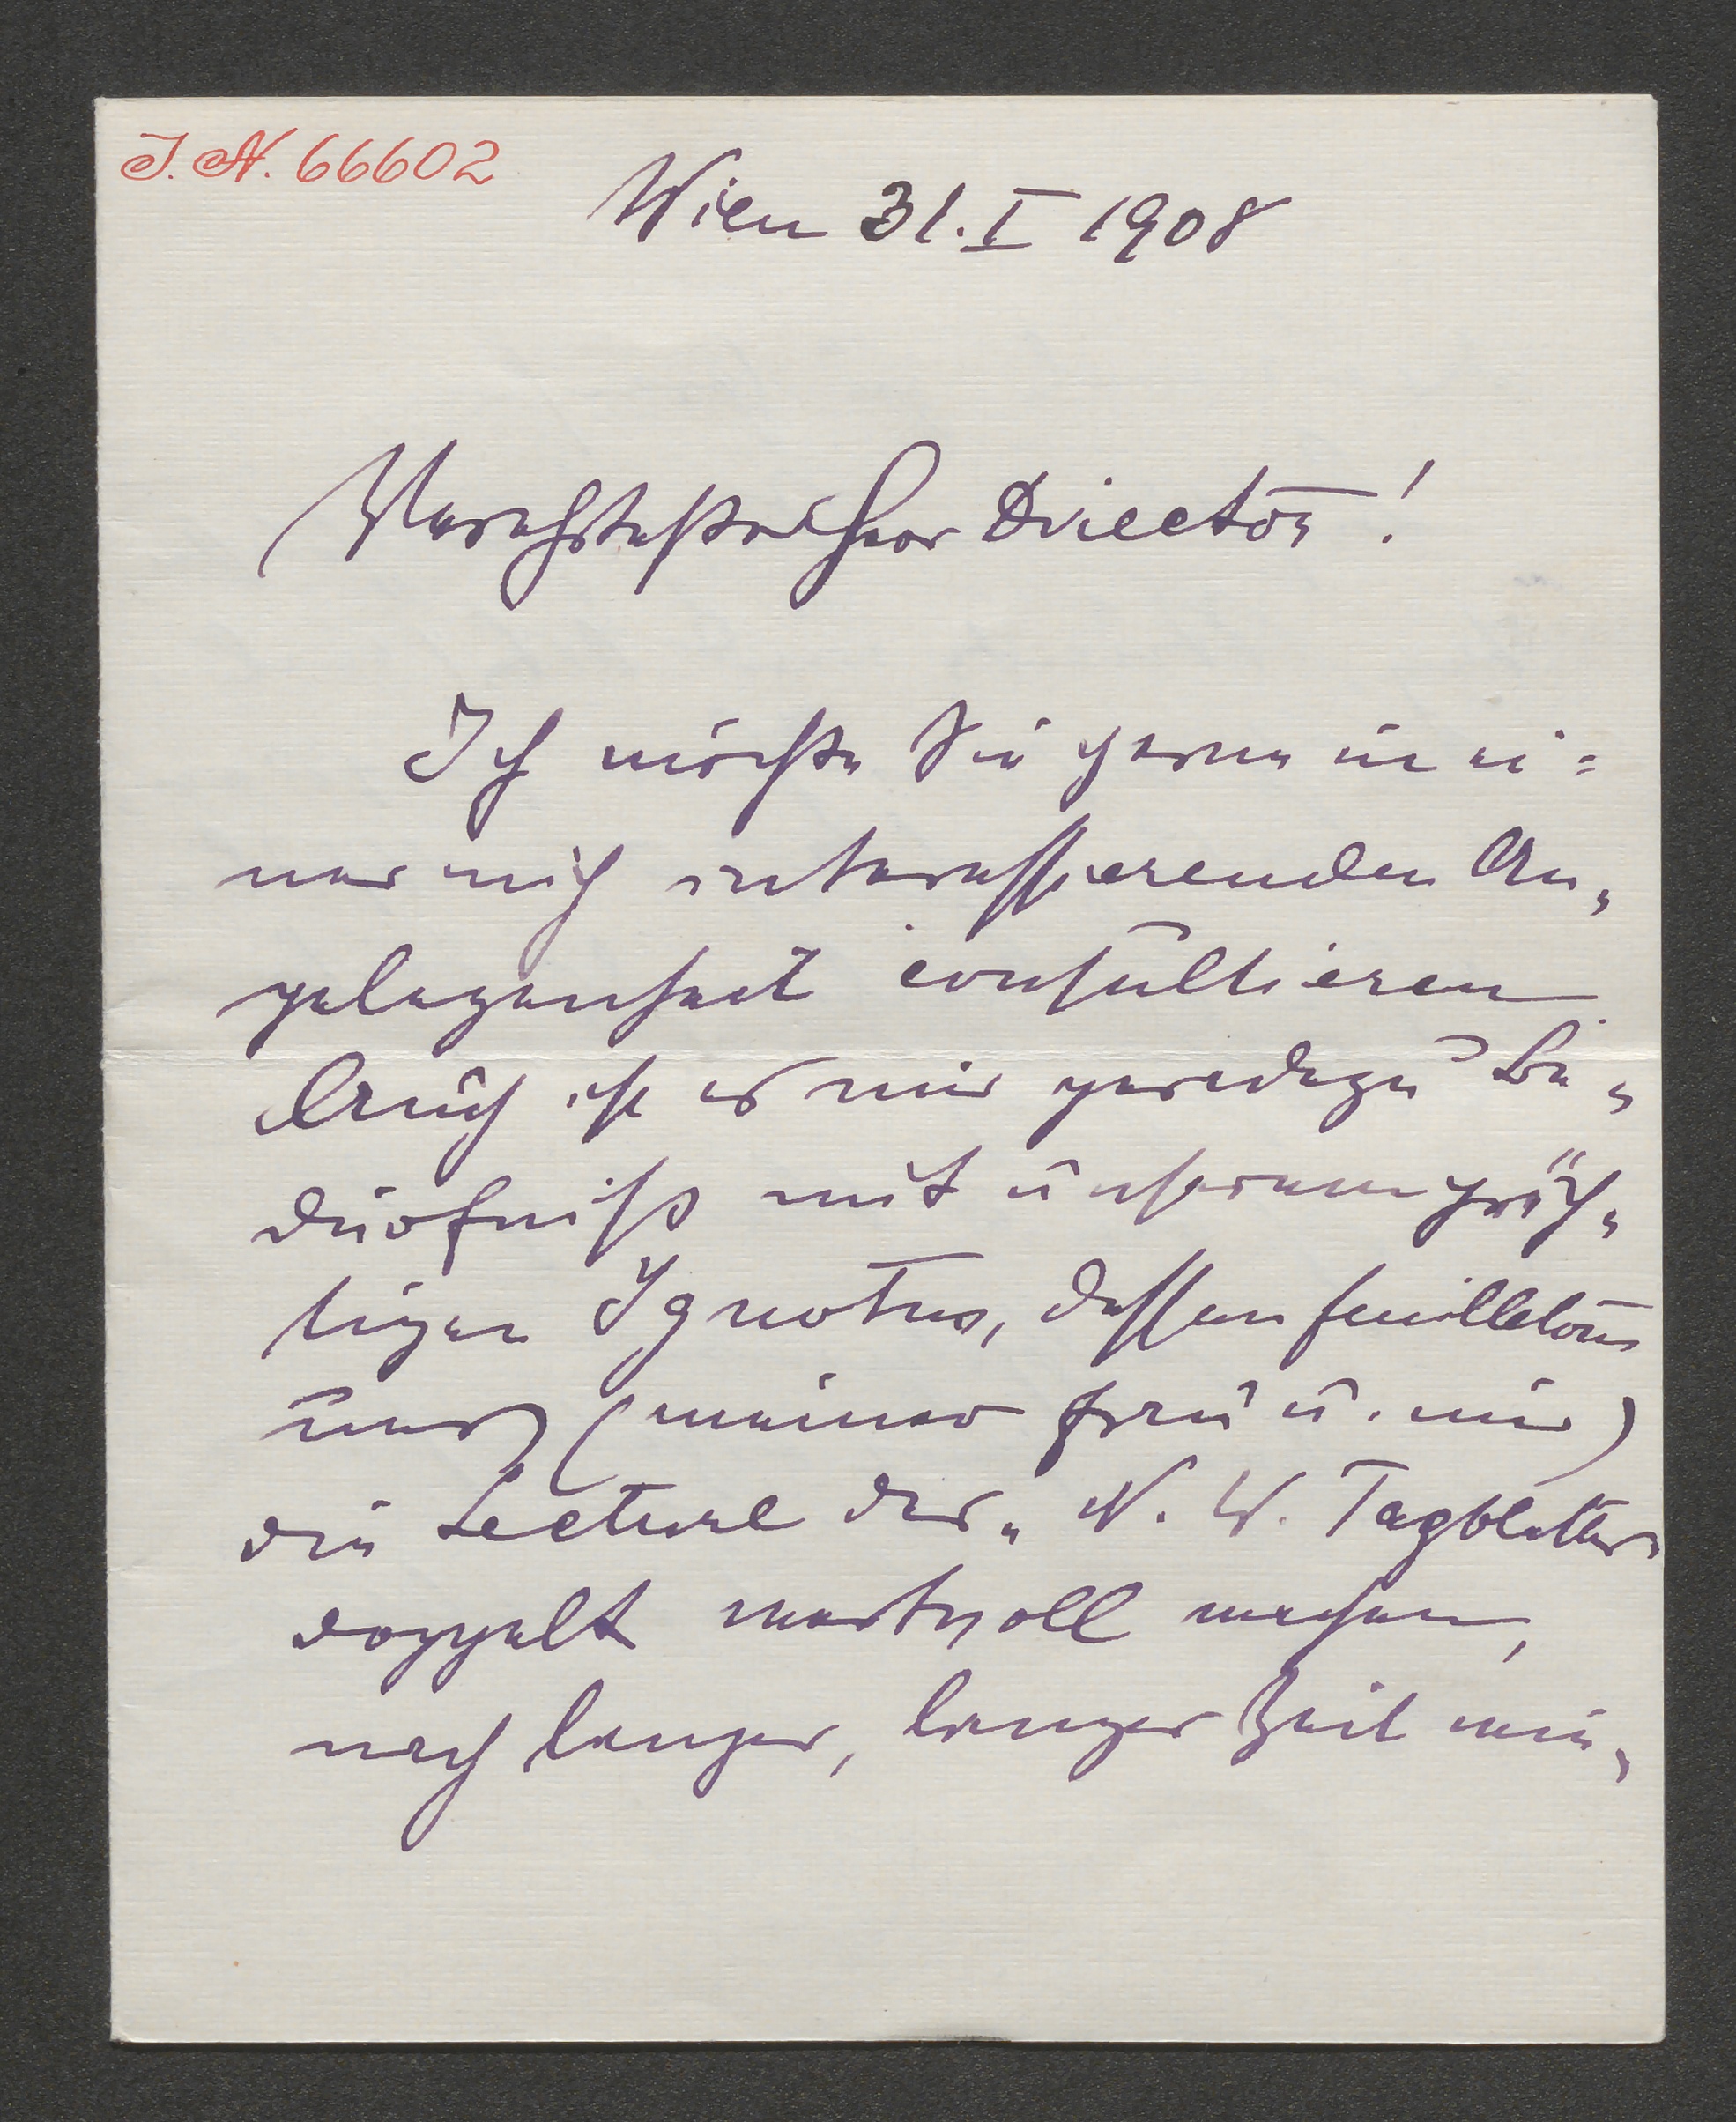 J. N. 66602
Wien 31. I 1908
Verehrtester Herr Director!
Ich möchte Sie gerne in ei=
ner mich interessierenden An„
gelegenheit consultieren.
Auch ist es mir geradezu Be„
dürfniß mit unserem präch„
tigen Ignotus, dessen feuilletons
uns (meiner Frau u. mir)
die Lecture des „N. W. Tagblattes“
doppelt wertvoll machen,
nach langer, langer Zeit wie„